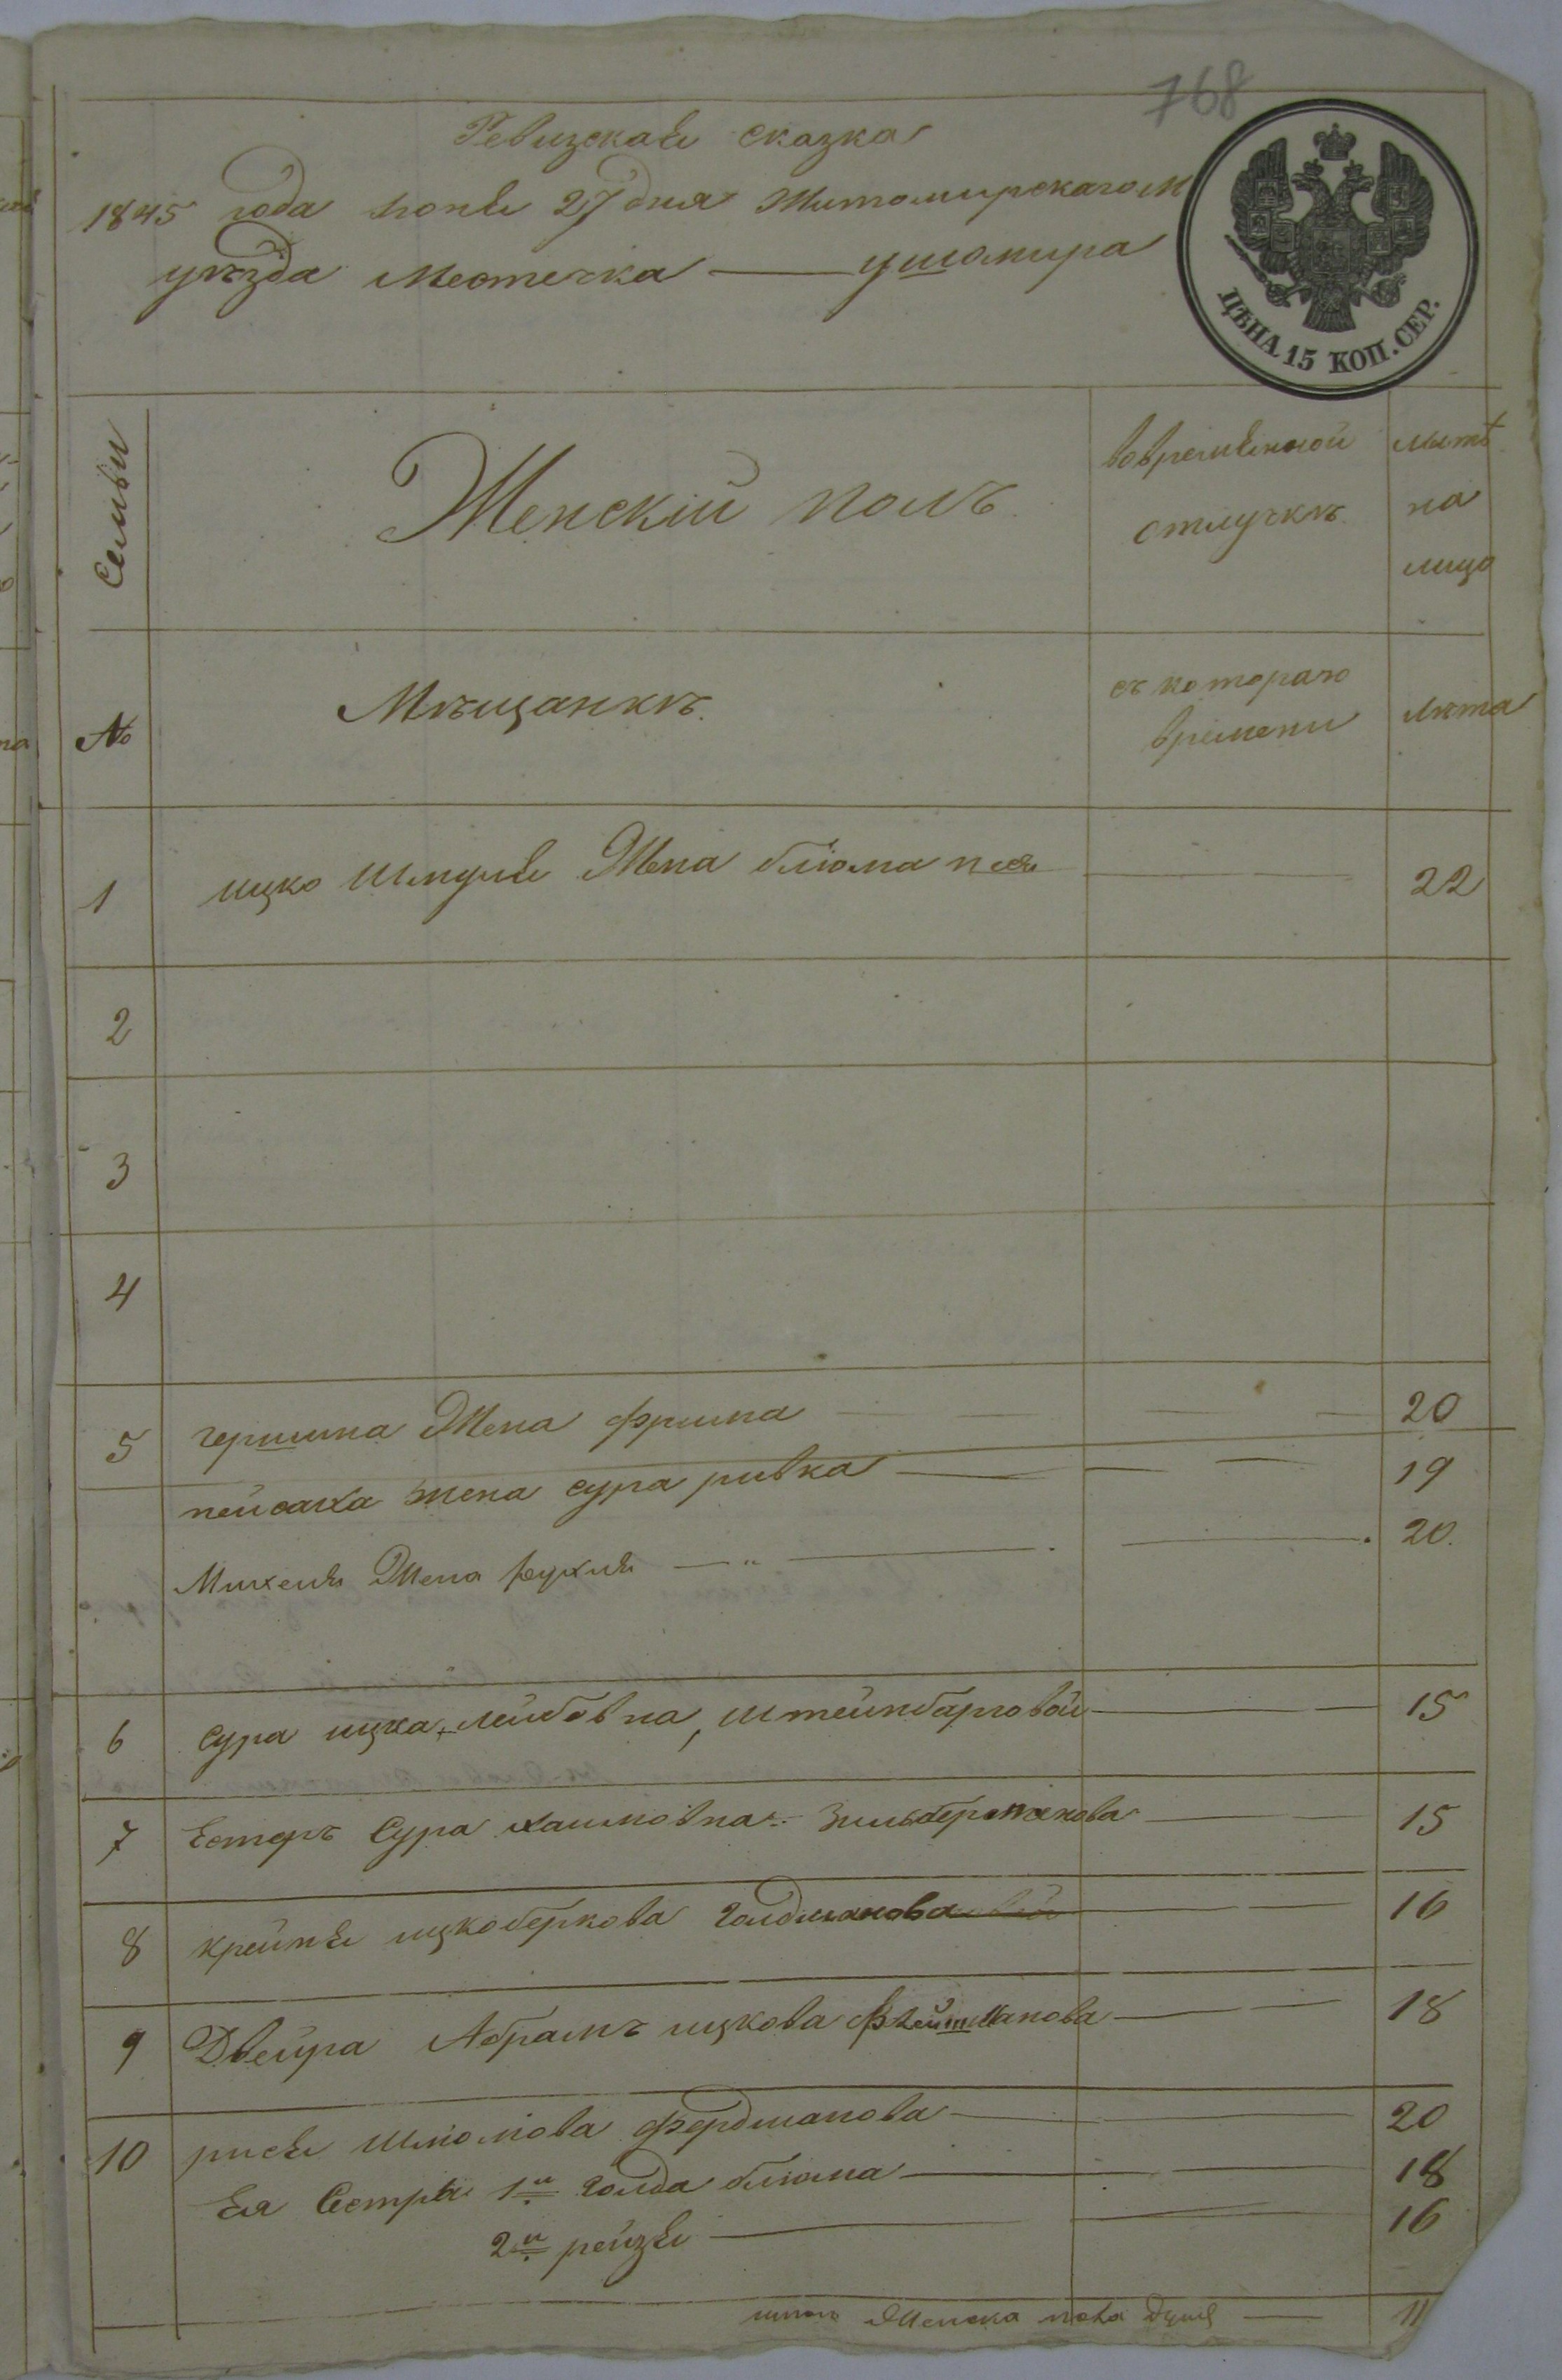 768
Ревизская сказка
1845 года Июня 27 дня Житомирскаго
уѣзда Месточка — ушомира
ЦѢНА 15 КОП. СЕР.
Семьи
Женскій полъ
вовременной отлучкѣ
на лицо
№
Мѣщанкѣ.
съ котораго времени
Лѣта
1 ицко Шмуля Жена блюма — 22
2
3
4
5 гершка Жена фрима — 20
пейсаха жена сура ривка — 19
Михеля Жена рухля — 20.
6 Сура ицка, лейбовна, штейнбарговой — 15
7 Естеръ Сура хаимовна Зильберманова — 15
8 крейня ицкоберкова Голдманова — 16
9 Двейра Абрамъ ицкова — 18
10 рися Шлiомова фердманова — 20
Ея Сестры 1я голда блюма — 18
2я рейзя — 16
итого Женска пола душъ — 11